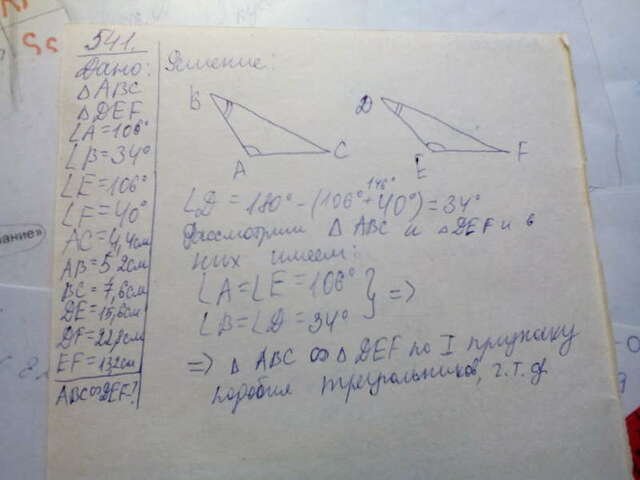 541.
Дано:
△ ABC
△ DEF
∠A=106°
∠B=34°
∠E=106°
∠F=40°
AC=4,4см
AB=5,2см
BC=7,6см
DE=15,6см
DF=22,8см
EF=13,2см
ABC∾DEF?
Решение:
B
A
C
D
E
F
146°
∠D = 180° - (106°+40°) = 34°
Рассмотрим △ ABC и △ DEF и в
них имеем:
∠A=∠E=106° } =>
∠B=∠D=34°
=> △ ABC ∾ △ DEF по I признаку
подобия треугольников, ч.т.д.
вание»